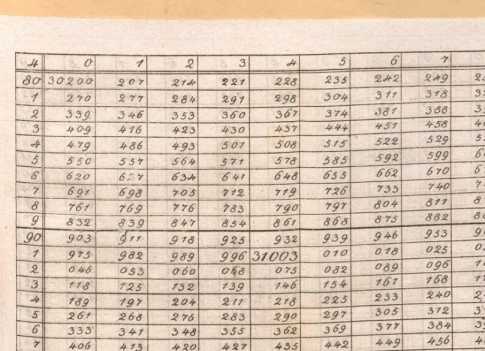 4 0 1 2 3 4 5 6 7
80 30200 207 214 221 228 235 242 249
1 270 277 284 291 298 304 311 318
2 339 346 353 360 367 374 381 388
3 409 416 423 430 437 444 451 458
4 479 486 493 501 508 515 522 529
5 550 557 564 571 578 585 592 599
6 620 627 634 641 648 655 662 670
7 691 698 705 712 719 726 733 740
8 761 769 776 783 790 797 804 811
9 832 839 847 854 861 868 875 882
90 903 911 918 925 932 939 946 953
1 975 982 989 996 31003 010 018 025
2 046 053 060 068 075 082 089 096
3 118 125 132 139 146 154 161 168
4 189 197 204 211 218 225 233 240
5 261 268 276 283 290 297 305 312
6 333 341 348 355 362 369 377 384
7 406 413 420 427 435 442 449 456